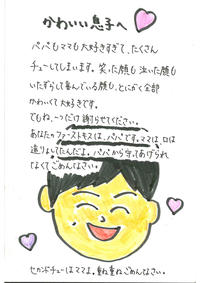 かわいい息子へ
パパもママも大好きすぎて、たくさん
チューしてしまいます。笑った顔も泣いた顔も
いたずらして喜んでいる顔も、とにかく全部
かわいくて大好きです。
でもね、一つだけ謝らせてください。
あなたのファーストキスは、パパです。ママは口は
避けようとしてたんだよ。パパから守ってあげられ
なくてごめんなさい。
セカンドチューはママよ。重ね重ねごめんなさい。